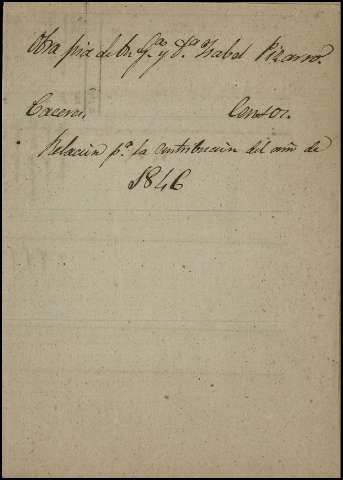 Obra pia de Dn Fco y Dª Ysabel Pizarro.
Caceres. Censos.
Relacion pª la contribucion del año de
1846